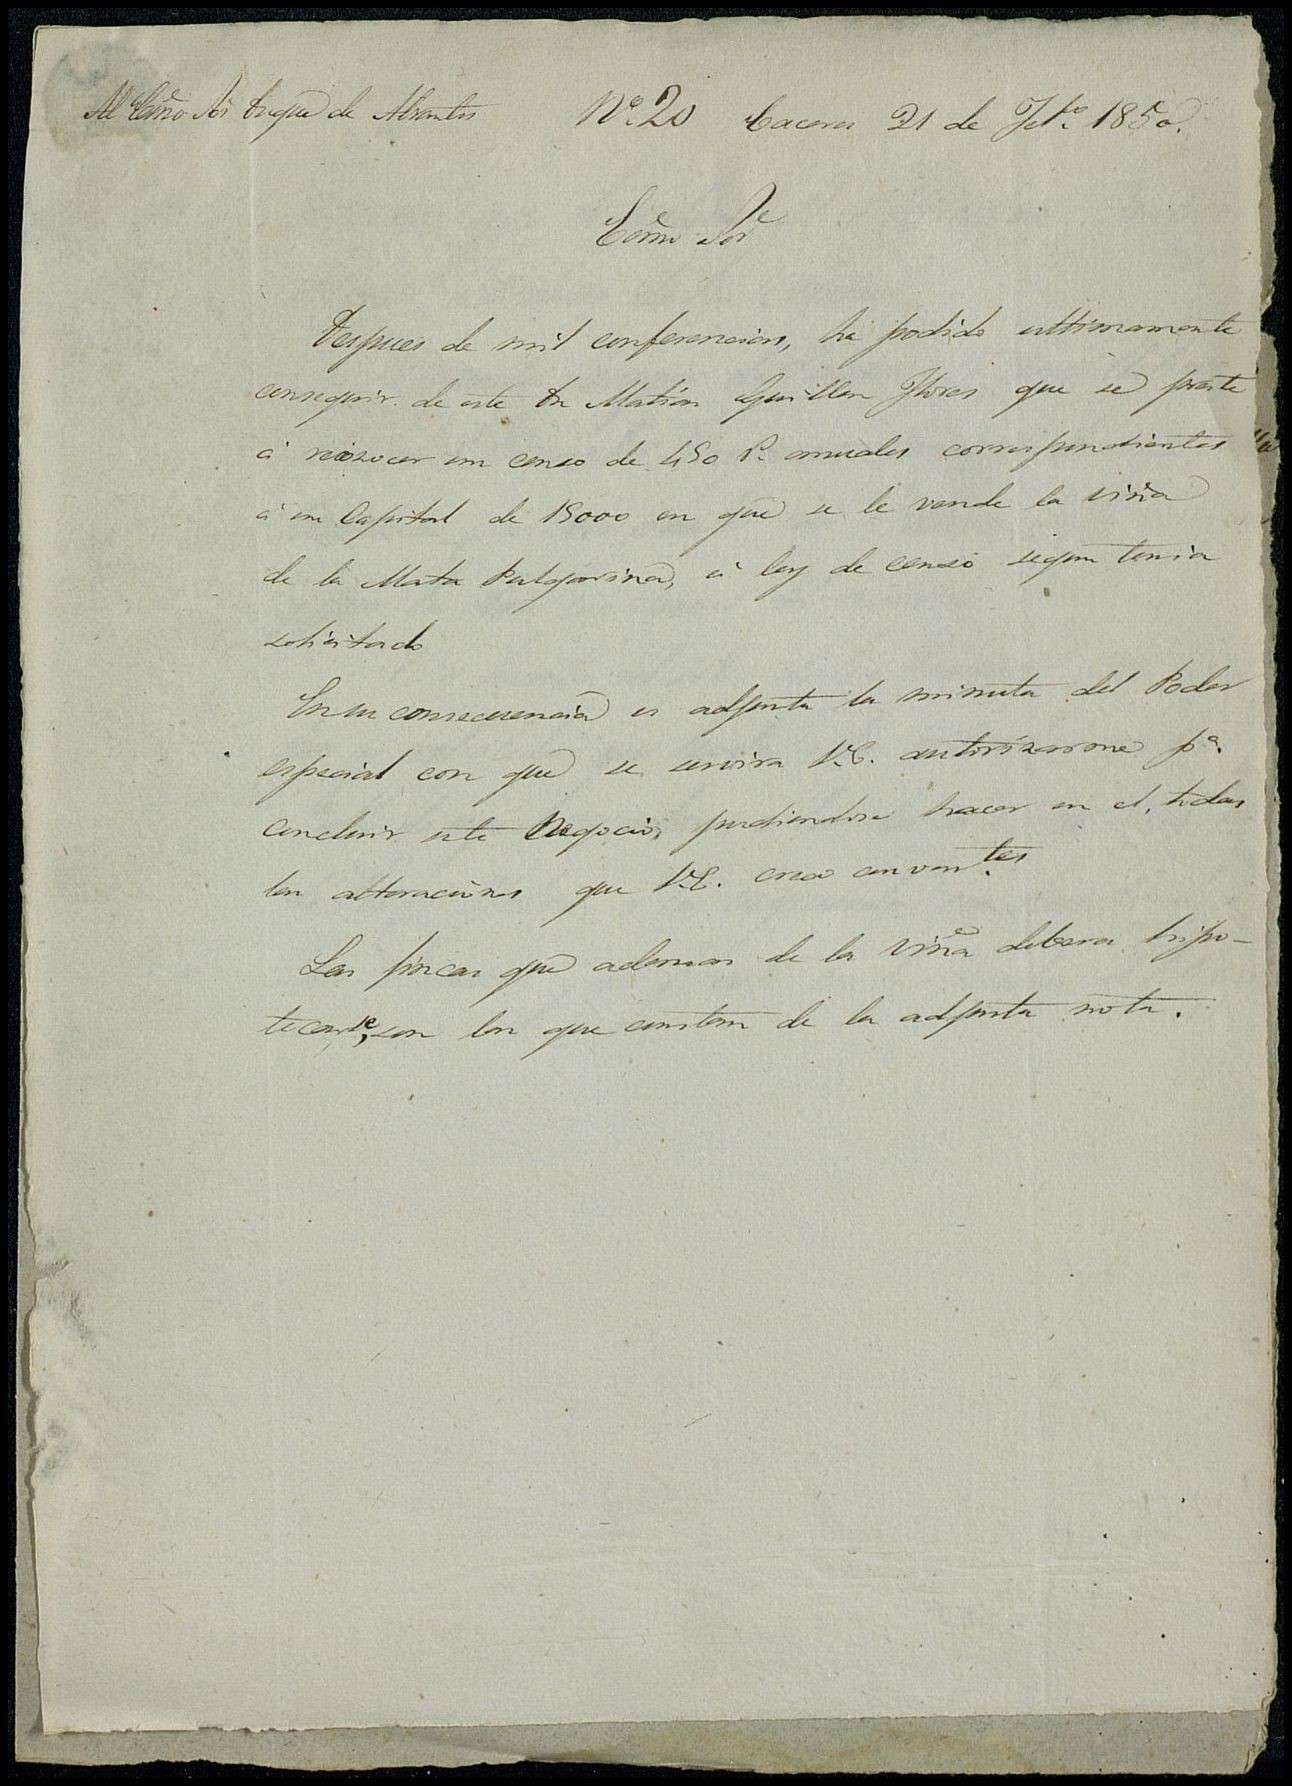 Al Exmo Sor Duque de Abrantes Nº 20 Caceres 21 de Feb.º 1850.
Exmo Sor
Despues de mil conferencias, he podido ultimamente
conseguir de este Dn Matias Guillen Flores que se preste
á reconocer un censo de 450 rs. anuales correspondientes
á un Capital de 15000 en que se le vende la viña
de la Mata Pulgosina, á ley de censo segun tenia
solicitado
En su consecuencia es adjunta la minuta del Poder
especial con que se servira V.E. autorizarme pª.
concluir este Negocio, pudiendose hacer en el, todas
las alteraciones que V.E. crea conven.tes
Las fincas que ademas de la viña deberan hipo-
tecarse, son las que constan de la adjunta nota.